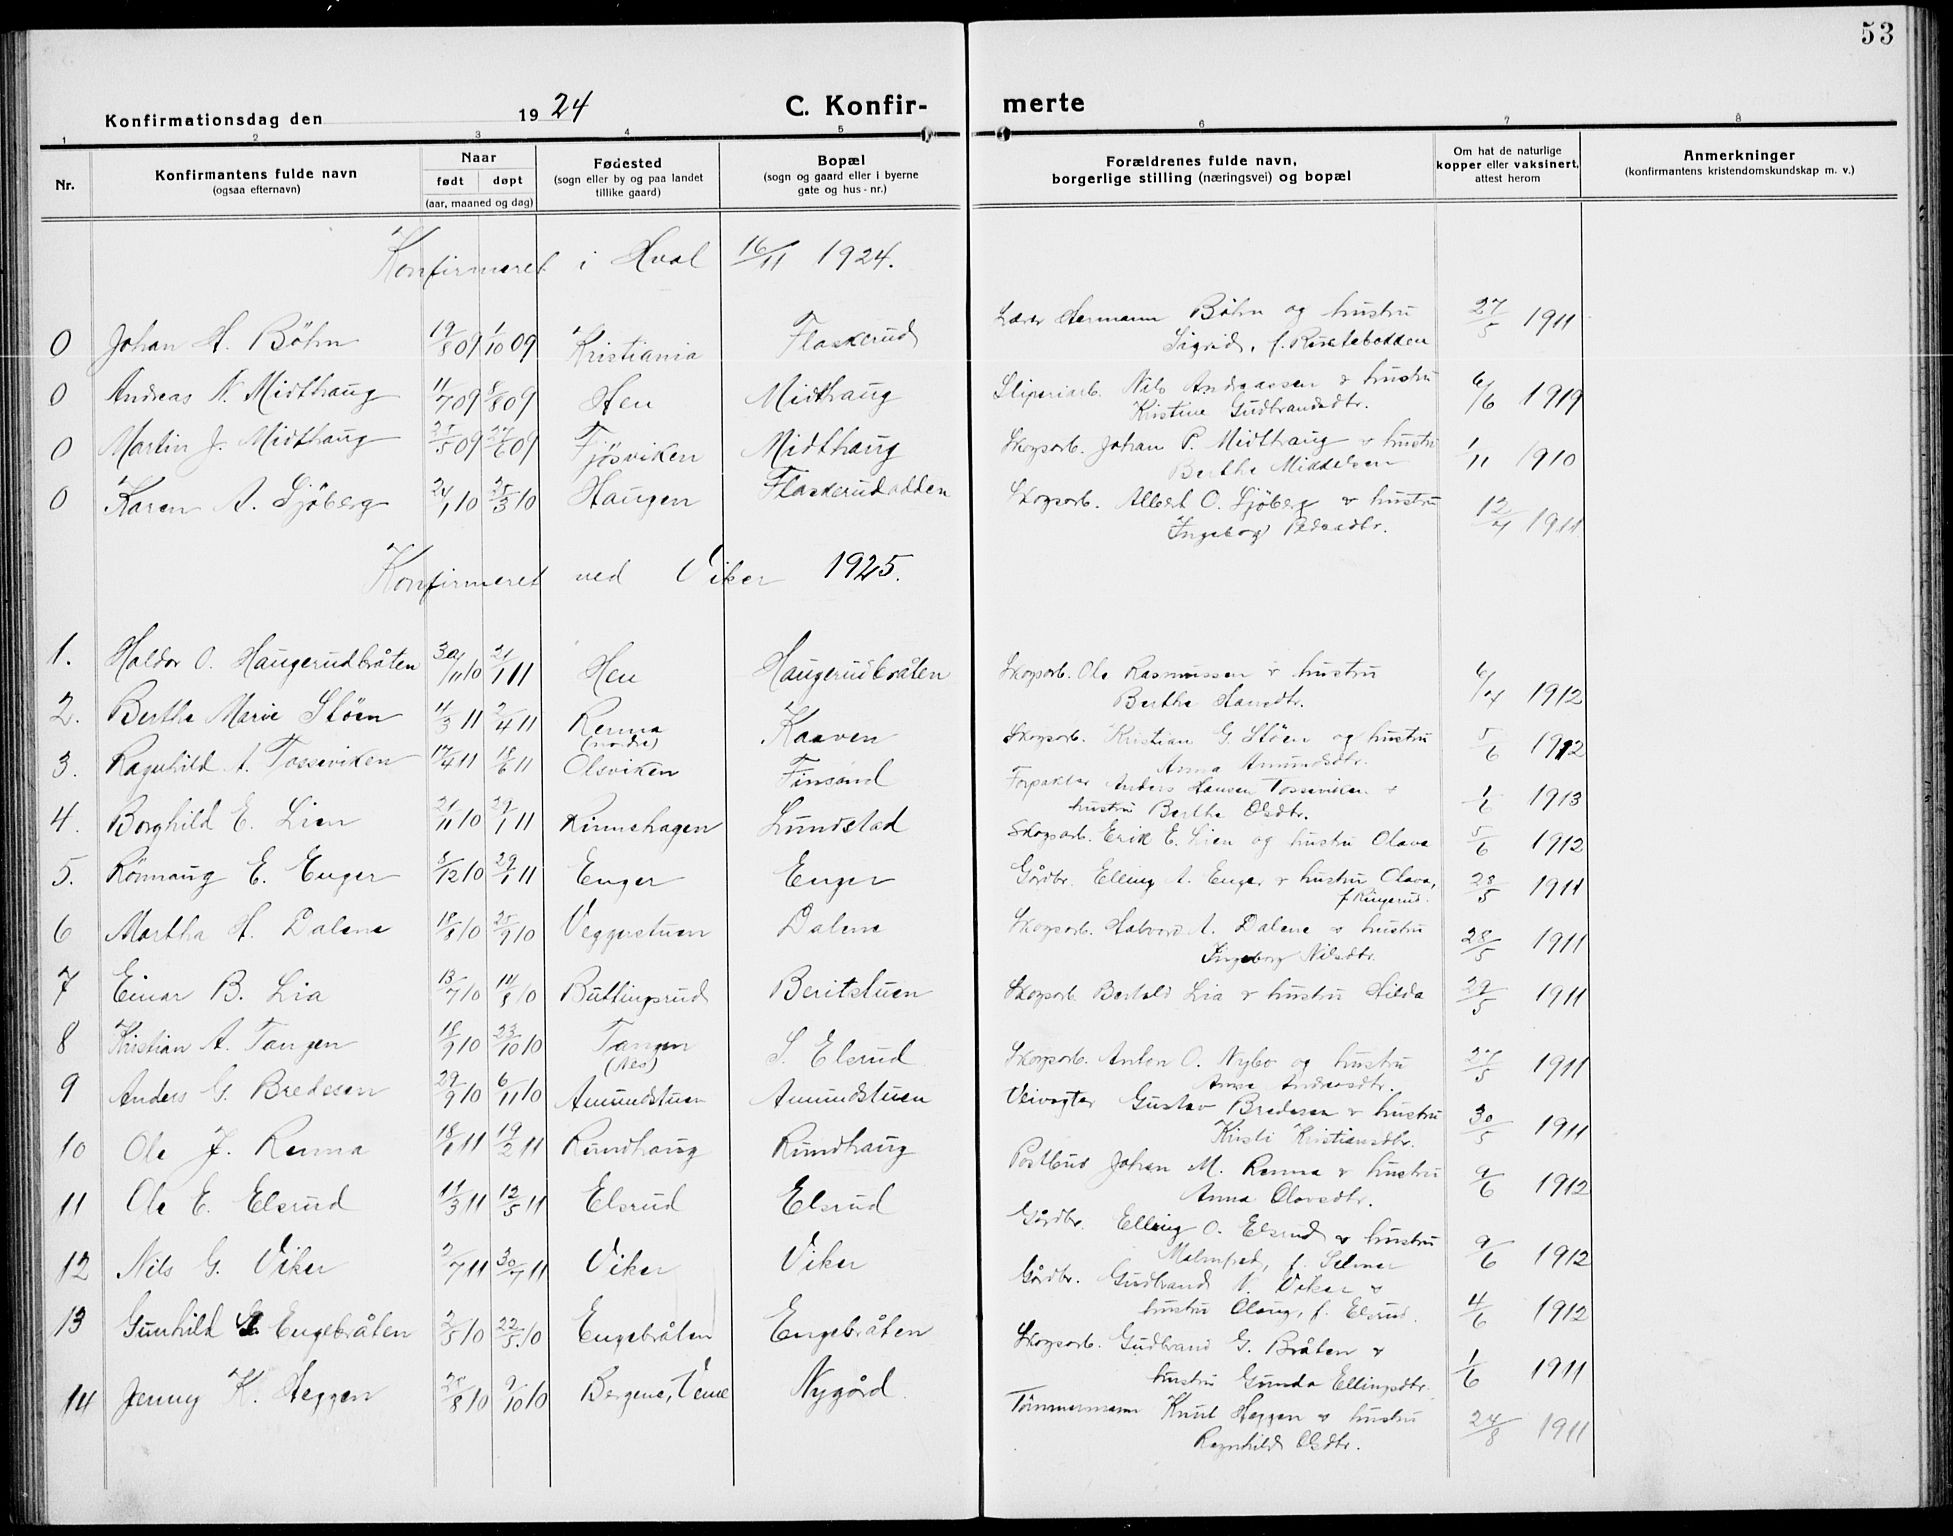 53
Konfirmationsdag den 1924 C. Konfirmerte
1 2 3 4 5 6 7 8
Nr. Konfirmantens fulde navn (ogsaa efternavn) Naar født døpt (aar, maaned og dag) Fødested (sogn eller by og paa landet tillike gaard) Bopæl (sogn og gaard eller i byerne gate og hus-nr.) Forældrenes fulde navn, borgerlige stilling (næringsvei) og bopæl Om hat de naturlige kopper eller vaksinert, attest herom Anmerkninger (konfirmantens kristendomskundskap m. v.)
Konfirmeret i Hval 16/11 1924.
0 Johan H. Böhn 19/8 09 1/10 09 Kristiania Flaskerud Lærer Hermann Böhn og hustru Sigrid, f. 27/5 1911
0 Andreas N. Midthaug 11/7 09 8/8 09 Hen Midthaug Sliperiarb. Nils Andreassen & hustru Kristine Gudbrandsdtr. 6/6 1919
0 Martin J. Midthaug 21/5 09 27/6 09 Fjösviken Midthaug Skogsarb. Johan P. Midthaug & hustru Berthe Middelsen 1/11 1910
0 Karen A. Sjöberg 24/1 10 25/3 10 Haugen Flaskerudodden Skogsarb. Albert O. Sjöberg & hustru Ingeborg Pedersdtr. 12/4 1911
Konfirmeret ved Viker 1925.
1. Haldor O. Haugerudbråten 30/11 10 21/1 11 Hen Haugerudbråten Skogsarb. Ole Rasmussen & hustru Berthe Hansdtr. 6/4 1912
2. Berthe Marie Stöen 11/3 11 2/4 11 Renna (nordre) Kaaven Skogsarb. Kristian G. Stöen og hustru Anna Amundsdtr. 5/6 1912
3. Ragnhild A. Tosseviken 17/4 11 18/6 11 Olsviken Finsand Forpakter Anders Hansen Tosseviken & hustru Berthe Olsdtr. 1/6 1913
4. Borghild E. Lien 21/11 10 29/1 11 Rinnehagen Lundstad Skogsarb. Erik E. Lien og hustru Olava 5/6 1912
5. Rönnaug E. Enger 5/12 10 29/1 11 Enger Enger Gårdbr. Elling A. Enger & hustru Olava, f. Ringerud. 28/5 1911
6 Martha H. Dalene 18/8 10 25/9 10 Veggerstuen Dalene Skogsarb. Halvord A. Dalene & hustru Ingeborg Nilsdtr. 28/5 1911
7 Einar B. Lia 13/7 10 14/8 10 Buttingsrud Beritstuen Skogsarb. Bertold Lia & hustru Hilda 29/5 1911
8 Kristian A. Tangen 18/9 10 23/10 10 Tangen (Aas) S. Elsrud Skogsarb. Anton O. Nybo og hustru Anne Andreasdtr. 27/5 1911
9 Anders G. Bredesen 29/9 10 6/11 10 Amundstuen Amundstuen Veivogter Gustav Bredesen & hustru Kristi Kristiansdtr. 30/5 1911
10 Ole J. Renna 18/1 11 19/2 11 Rundhaug Rundhaug Postbud Johan M. Renna & hustru Anna Olavsdtr. 9/6 1912
11 Ole E. Elsrud 11/3 11 12/5 11 Elsrud Elsrud Gårdbr. Elling O. Elsrud & hustru Malmfrid, f. Selmer 9/6 1912
12 Nils G. Viker 2/7 11 30/7 11 Viker Viker Gårdbr. Gudbrand N. Viker & hustru Olaug, f. Elsrud. 4/6 1912
13 Gunhild G. Engebråten 2/5 10 22/5 10 Engebråten Engebråten Skogsarb. Gudbrand G. Bråten & hustru Gunda Ellingsdtr. 1/6 1911
14 Jenny K. Heggen 25/8 10 9/10 10 Bergene, Veme Nygård Tömmermann Knut Heggen & hustru Ragnhild Olsdtr. 24/8 1911